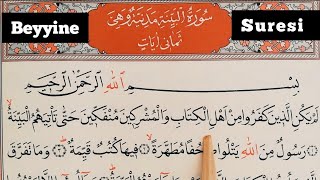 Beyyine
Suresi
سُورَةُ الْبَيِّنَةِ مَدَنِيَّةٌ وَهِيَ
ثَمَانِي اٰيَاتٍ
بِسْمِ اللّٰهِ الرَّحْمٰنِ الرَّحِيمِ
لَمْ يَكُنِ الَّذِينَ كَفَرُوا مِنْ اَهْلِ الْكِتَابِ وَالْمُشْرِكِينَ مُنْفَكِّينَ حَتّٰى تَأْتِيَهُمُ الْبَيِّنَةُ
رَسُولٌ مِنَ اللّٰهِ يَتْلُوا صُحُفًا مُطَهَّرَةً فِيهَا كُتُبٌ قَيِّمَةٌ وَمَا تَفَرَّقَ